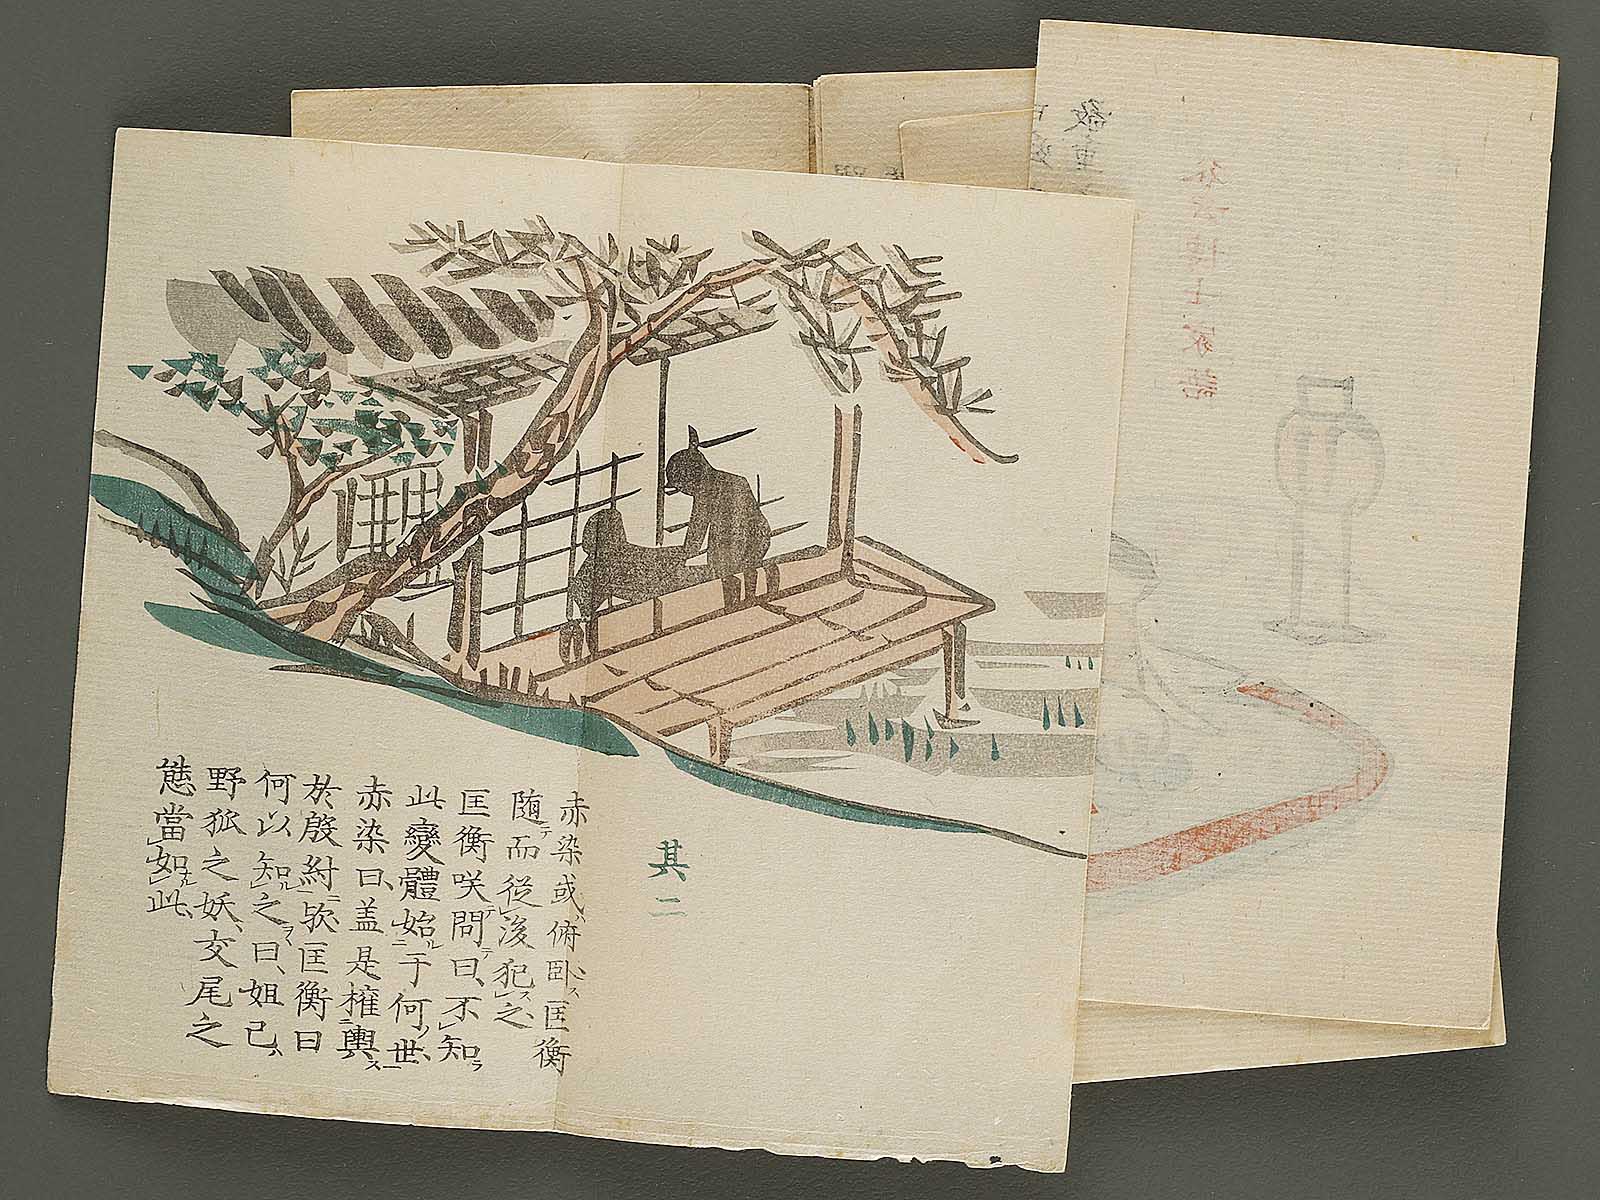 其二
赤染或俯卧匡衡
随而従後犯之
匡衡咲問曰、不知
此變體始于何世
赤染曰、盖是権輿
於殷紂欤匡衡曰
何以知之曰、妲己
野狐之妖、交尾之
態當如此、